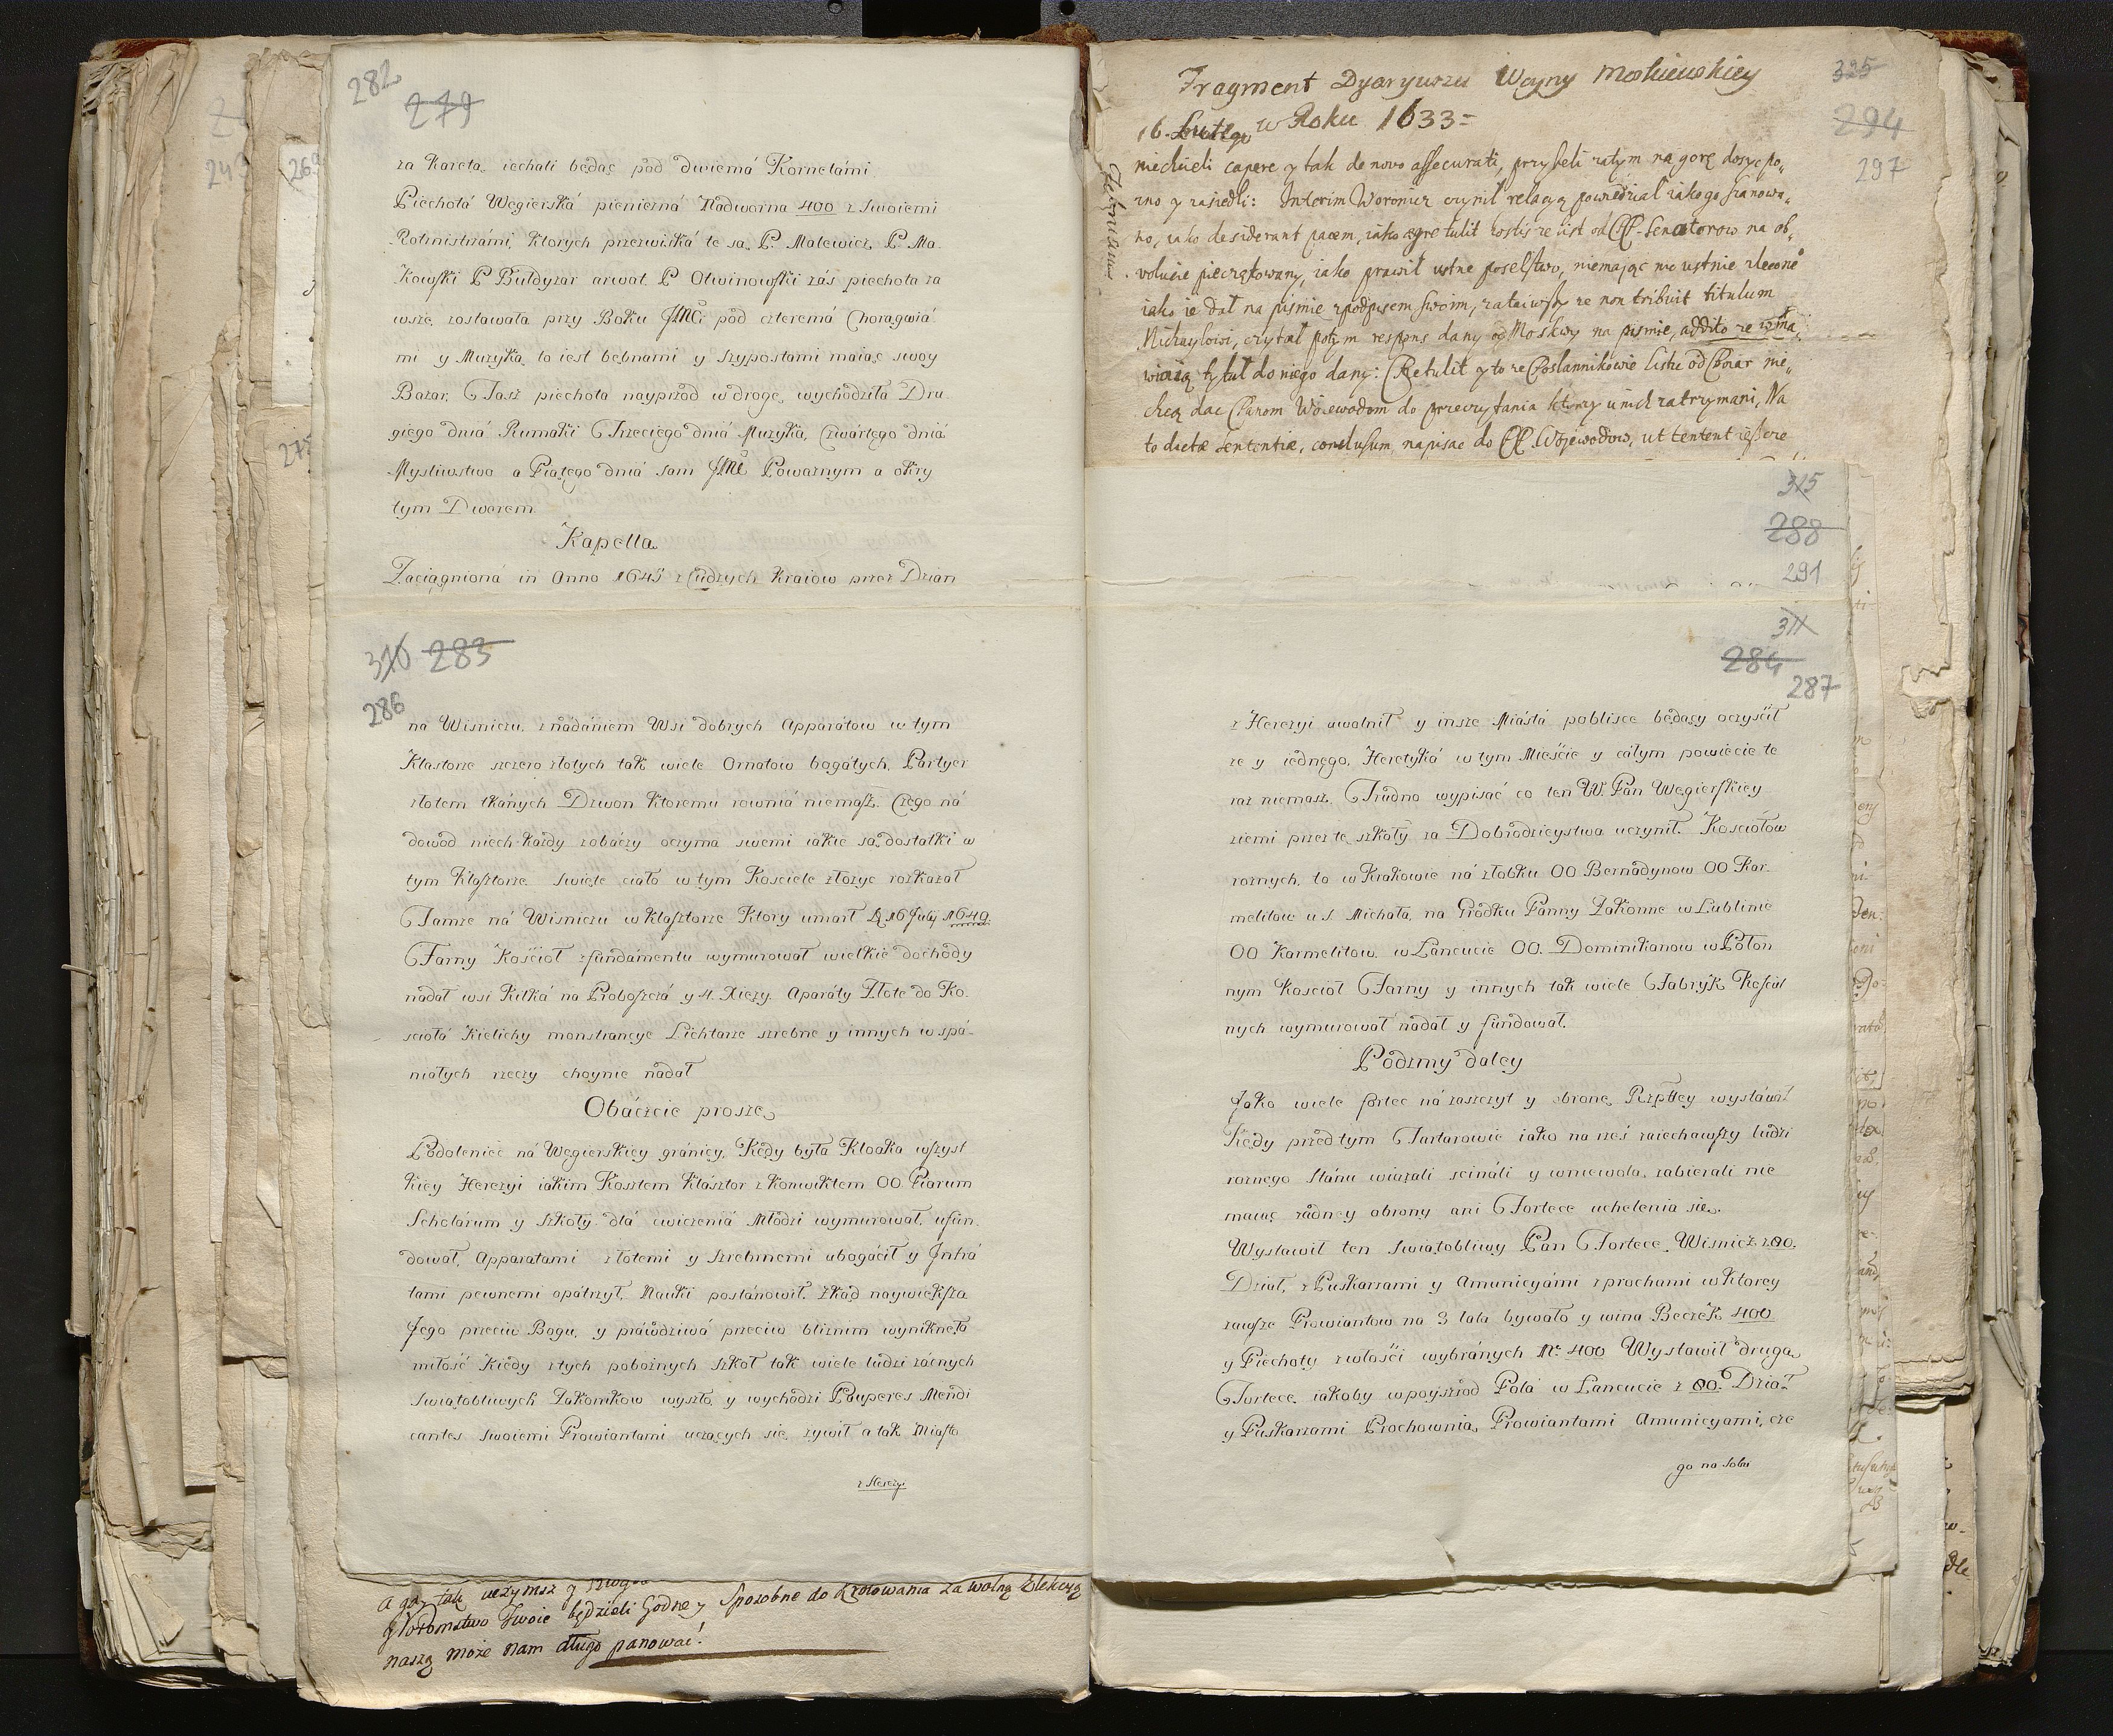 282
279
za Karetą iechali będąc pod dwiemá Kornetámi
Piechotá Węgierská pieniezná Nadworna 400 z Swoiemi
Rotmistrzámi, Ktorych przezwiská te są. P. Malewicz, P. Ma-
Kowski P Buldyzar arwat. P. Otwinowski zás piechota za
wsze zostawała przy Boku JMCi pod czteremá Chorągwiá
mi y Muzyką to iest bębnami y szyposzami maiąc swoy
Bazar. Tasz piechota nayprzod w drogę wychodziła Dru
giego dniá Rumaki Trzeciego dniá Muzyka, Czwartego dniá
Mysliwstwo a Piątego dniá sam JMC Powaznym a okry
tym Dworem
Kapella
Zaciągnioná in Anno 1645 z Cudzych Kraiow przez Dzian
310 283
286
na Wisniczu, z nádániem Wsi dobrych Apparátow w tym
Klasztorze szczero złotych tak wiele Ornatow bogátych, Partyer
złotem tkánych Dzwon Ktoremu rowniá niemasz. Czego ná
dowod niech Kázdy zobáczy oczyma swemi iákie są dostatki w
tym Klasztorze Swięte ciáło w tym Kosciele złozyc rozkazał
Tamze ná Wisniczu w Klasztorze Ktory umarł D 16 July 1649
Farny Kościoł z fundámentu wymurował wielkie dochody
nádał wsi Kilká na Proboszczá y 4. Xięzy. Aparáty Złote do Ko-
sciołá Kielichy monstrancye Lichtarze srzebne y innych wspá-
niałych rzeczy choynie nádał
Obáczcie proszę
Podoleniec ná Węgierskiey gránicy, Kędy była Kloaka wszyst
Kiey Herezyi iákim Kosztem Klasztor z Konwiktem OO. Piarum
Scholárum y Szkoły dlá cwiczeniá Młodzi wymurował, ufun-
dował, Apparatami złotemi y Srzebrnemi ubogácił y Intrá
tami pewnemi opátrzył, Nauki postánowił. Zkąd naywiększa
Jego przeciw Bogu, y práwdziwá przeciw blizním wyniknęła
miłość Kiedy z tych pobożnych szkoł tak wiele ludzi zácnych
Swiątobliwych Zakonnikow wyszło y wychodzi Pauperes Mendi
cantes Swoiemi Prowiantami uczących się zywił a tak Miasto
z Herezyi
325
294
297
Fragment Dyaryuszu Woyny Moskiewskiey
16. Lutego w Roku 1633 =
niechcieli capere y tak de novo assecurati, przyseli zatym na gorę dosyc po„
zno y zasiedli: Interim Woronicz czynił relacyą powiedział iako go szanowa„
no, iako desiderant pacem, iako ægre tulit ze list od PP. Senatorow na ob„
volucie pieczętowany, iako prawił ustne poselstwo, niemając nic ustnie zlecone
iako ie dał na pismie z podpisem swoim, zataiwszy ze non tribuit titulum
Michayłowi, czytał potym respons dany od Moskwy na pismie, addito ze
tytuł do niego dany: Retulit y to ze Posłannikowie listu od Boiar nie„
chcą dac Panom Woiewodom do przeczytania ktorzy u nich zatrzymani, Na
to dictæ sententiæ, conclusum napisac do PP. Woiewodow, ut tentent ieszcze
315
288
291
311
284
287
z Herezyi uwolnił y insze Miástá poblisce będący oczyścił
ze y iednego Heretyká w tym Mieście y całym powiecie te
raz niemasz. Trudno wypisáć co ten W. Pan Węgierskiey
ziemi przez te szkoły za Dobrodzieystwa uczynił. Kosciołow
roznych, to w Krakowie ná złobku OO Bernádynow OO Kar-
melitow u S. Michała, na Grodku Panny Zakonne w Lublinie
OO Karmelitow. w Lancucie OO. Dominikanow w Połon
nym Kosciół Farny y innych tak wiele Fabryk Kościel
nych wymurował nadał y fundował.
Podzmy daley
Jako wiele fortec ná zaszczyt y obronę Rzpltey wystáwił
Kędy przed tym Tartarowie iako na rzeź zaiechawszy ludzi
roznego Stánu wiązali scináli y w niewolą zabierali nie
maiąc żádney obrony ani Fortece uchelenia się.
Wystawił ten Swiątobliwy Pan Fortecę Wisnicz z 80.
Dział, z Puskarzami y Amunicyámi z prochami w Ktorey
zawsze Prowiantow na 3 lata bywało y wina Beczek 400
y Piechoty z włości wybránych No. 400 Wystawił drugą
Fortecę iakoby wpoyszrod Pola w Lancucie z 80. Dział
y Puskarzami Prochownią, Prowiantami Amunicyami, cze
go na Sobie
naszą może nam długo panować!